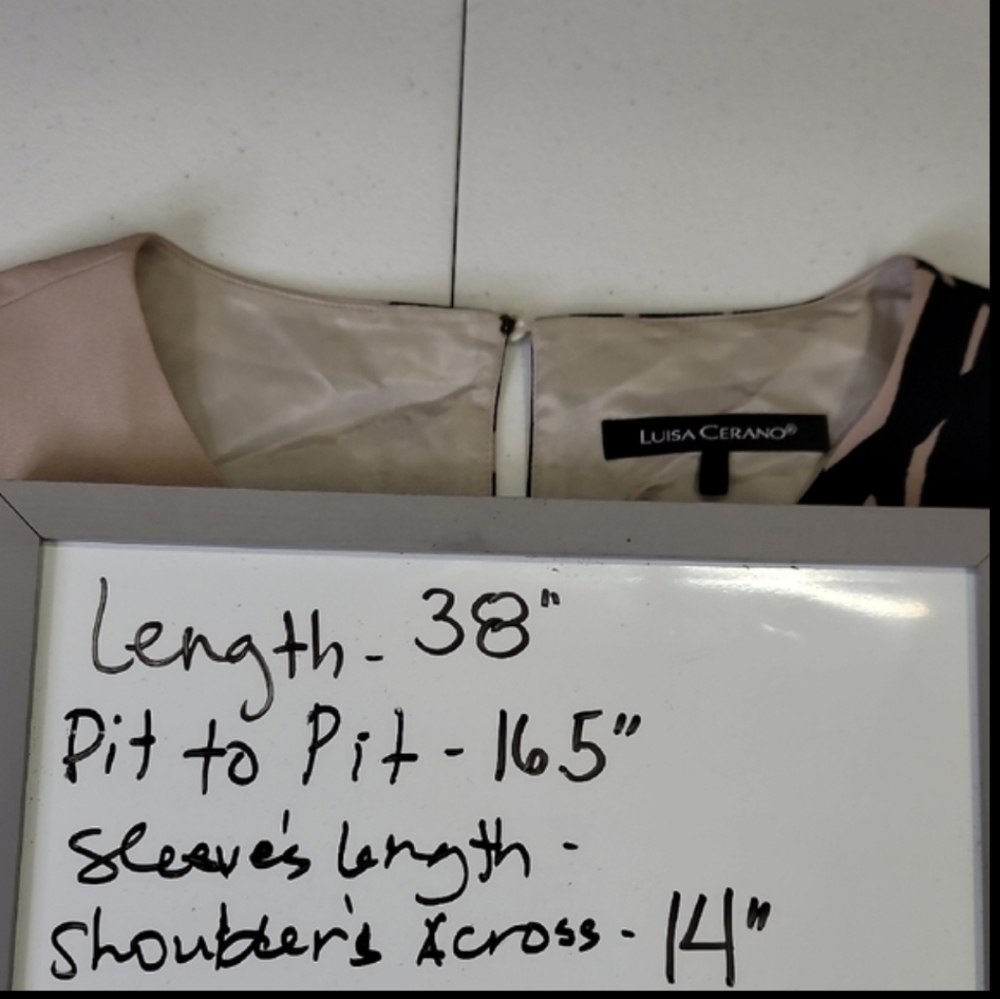 LUISA CERANO®
Length - 38"
Pit to Pit - 16.5"
Sleeve's Length -
Shoulder's Across - 14"